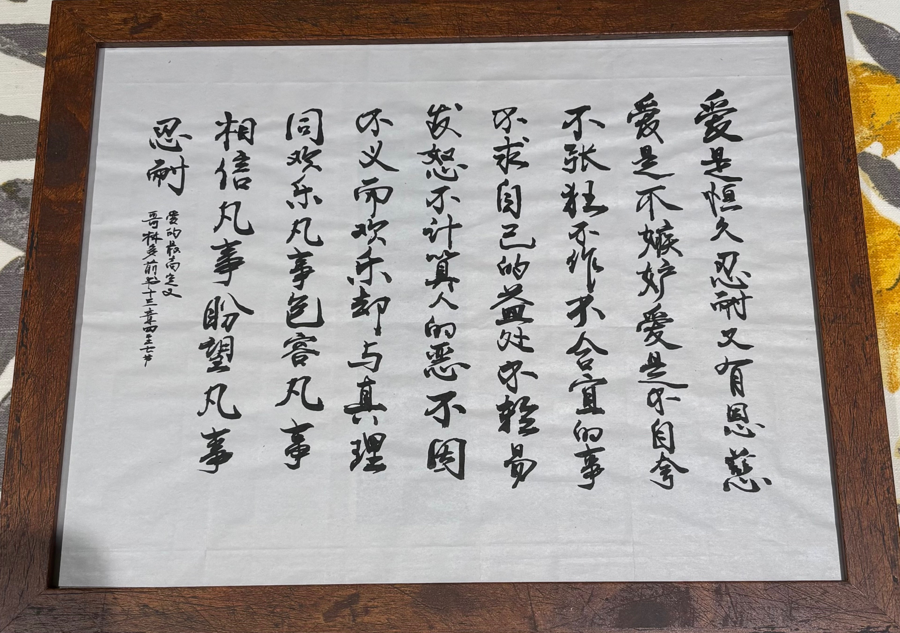 爱是恒久忍耐又有恩慈
爱是不嫉妒爱是不自夸
不张狂不作不合宜的事
不求自己的益处不轻易
发怒不计算人的恶不因
不义而欢乐却与真理
同欢乐凡事包容凡事
相信凡事盼望凡事
忍耐
爱的最高定义
哥林多前书十三章四至七节